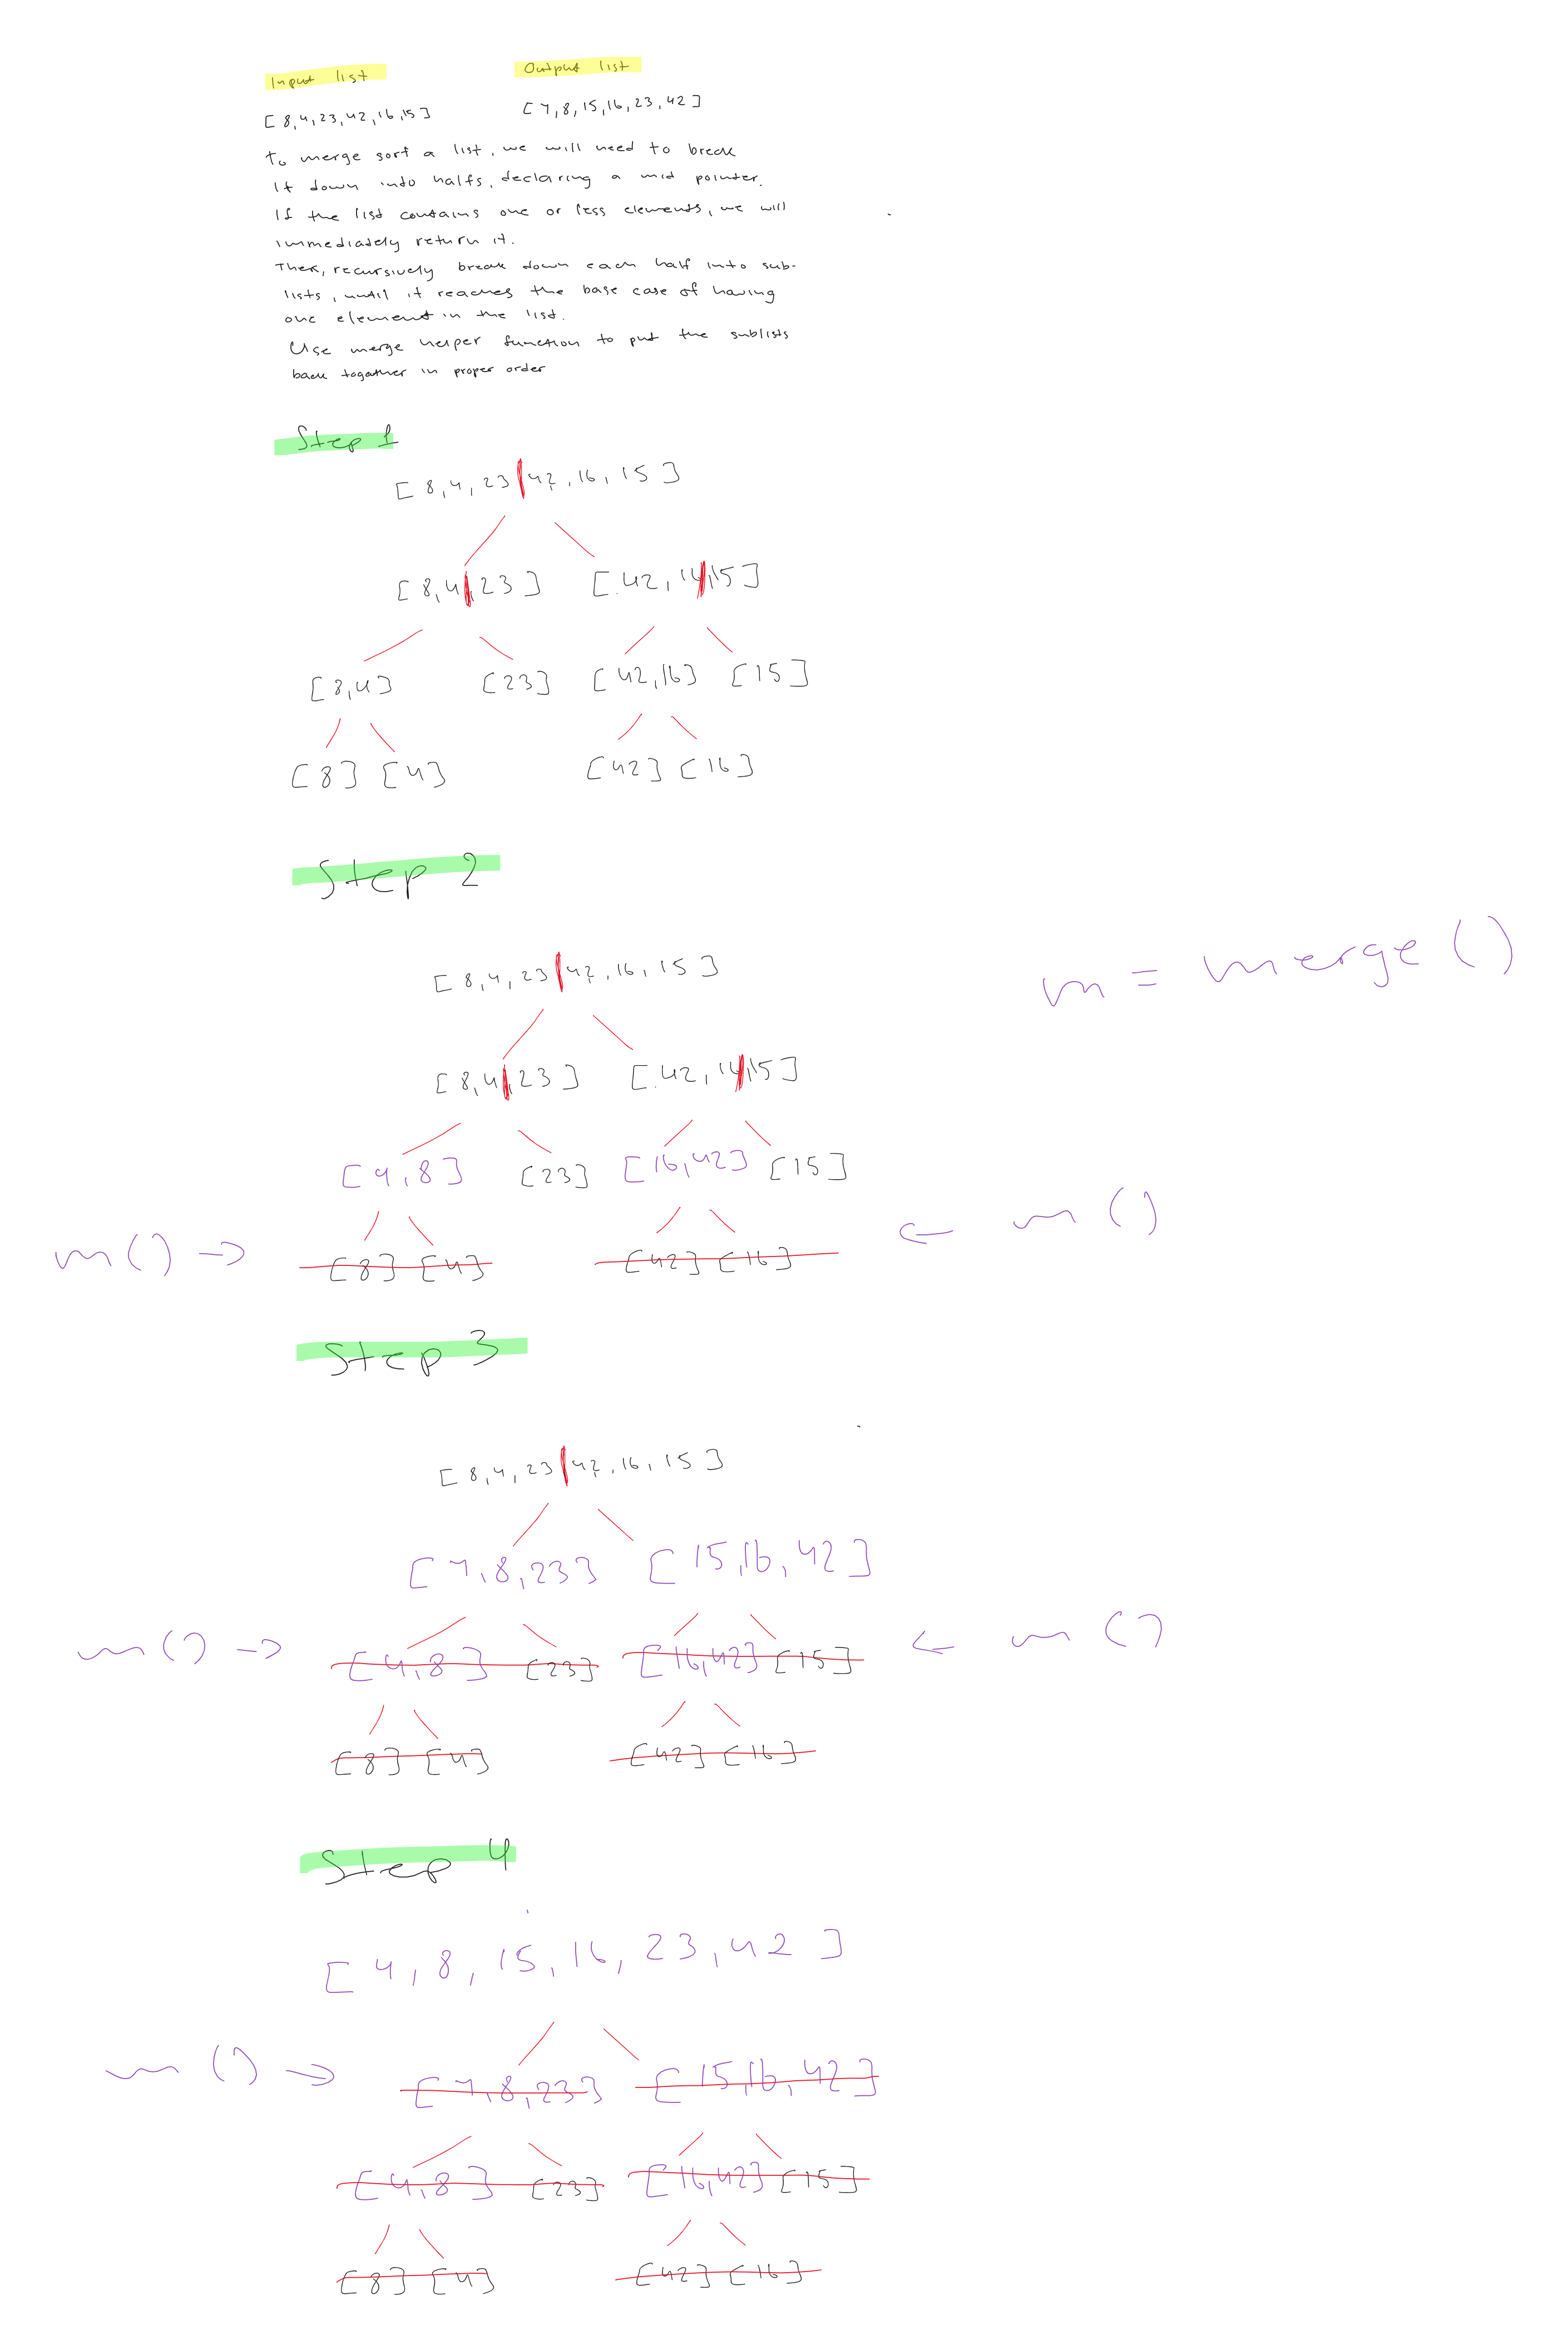 Input list
Output list
[ 8,4,23,42,16,15 ]
[ 4,8,15,16,23,42 ]
To merge sort a list, we will need to break
it down into halfs, declaring a mid pointer.
If the list contains one or less elements, we will
immediately return it.
Then, recursively break down each half into sub-
lists, until it reaches the base case of having
one element in the list.
Use merge helper function to put the sublists
back together in proper order
Step 1
[ 8,4,23|42,16,15 ]
[ 8,4|,23 ] [ 42,16|,15 ]
[8,4] [23] [42,16] [15]
[8] [4] [42] [16]
Step 2
m = merge ()
[ 8,4,23|42,16,15 ]
[ 8,4|,23 ] [ 42,16|,15 ]
[4,8] [23] [16,42] [15]
m() → [8] [4] [42] [16] ← m()
Step 3
[ 8,4,23|42,16,15 ]
[ 4,8,23] [ 15,16,42 ]
m() → [4,8] [23] [16,42] [15] ← m()
[8] [4] [42] [16]
Step 4
[ 4, 8, 15, 16, 23, 42 ]
m() → [4,8,23] [15,16,42]
[4,8] [23] [16,42] [15]
[8] [4] [42] [16]